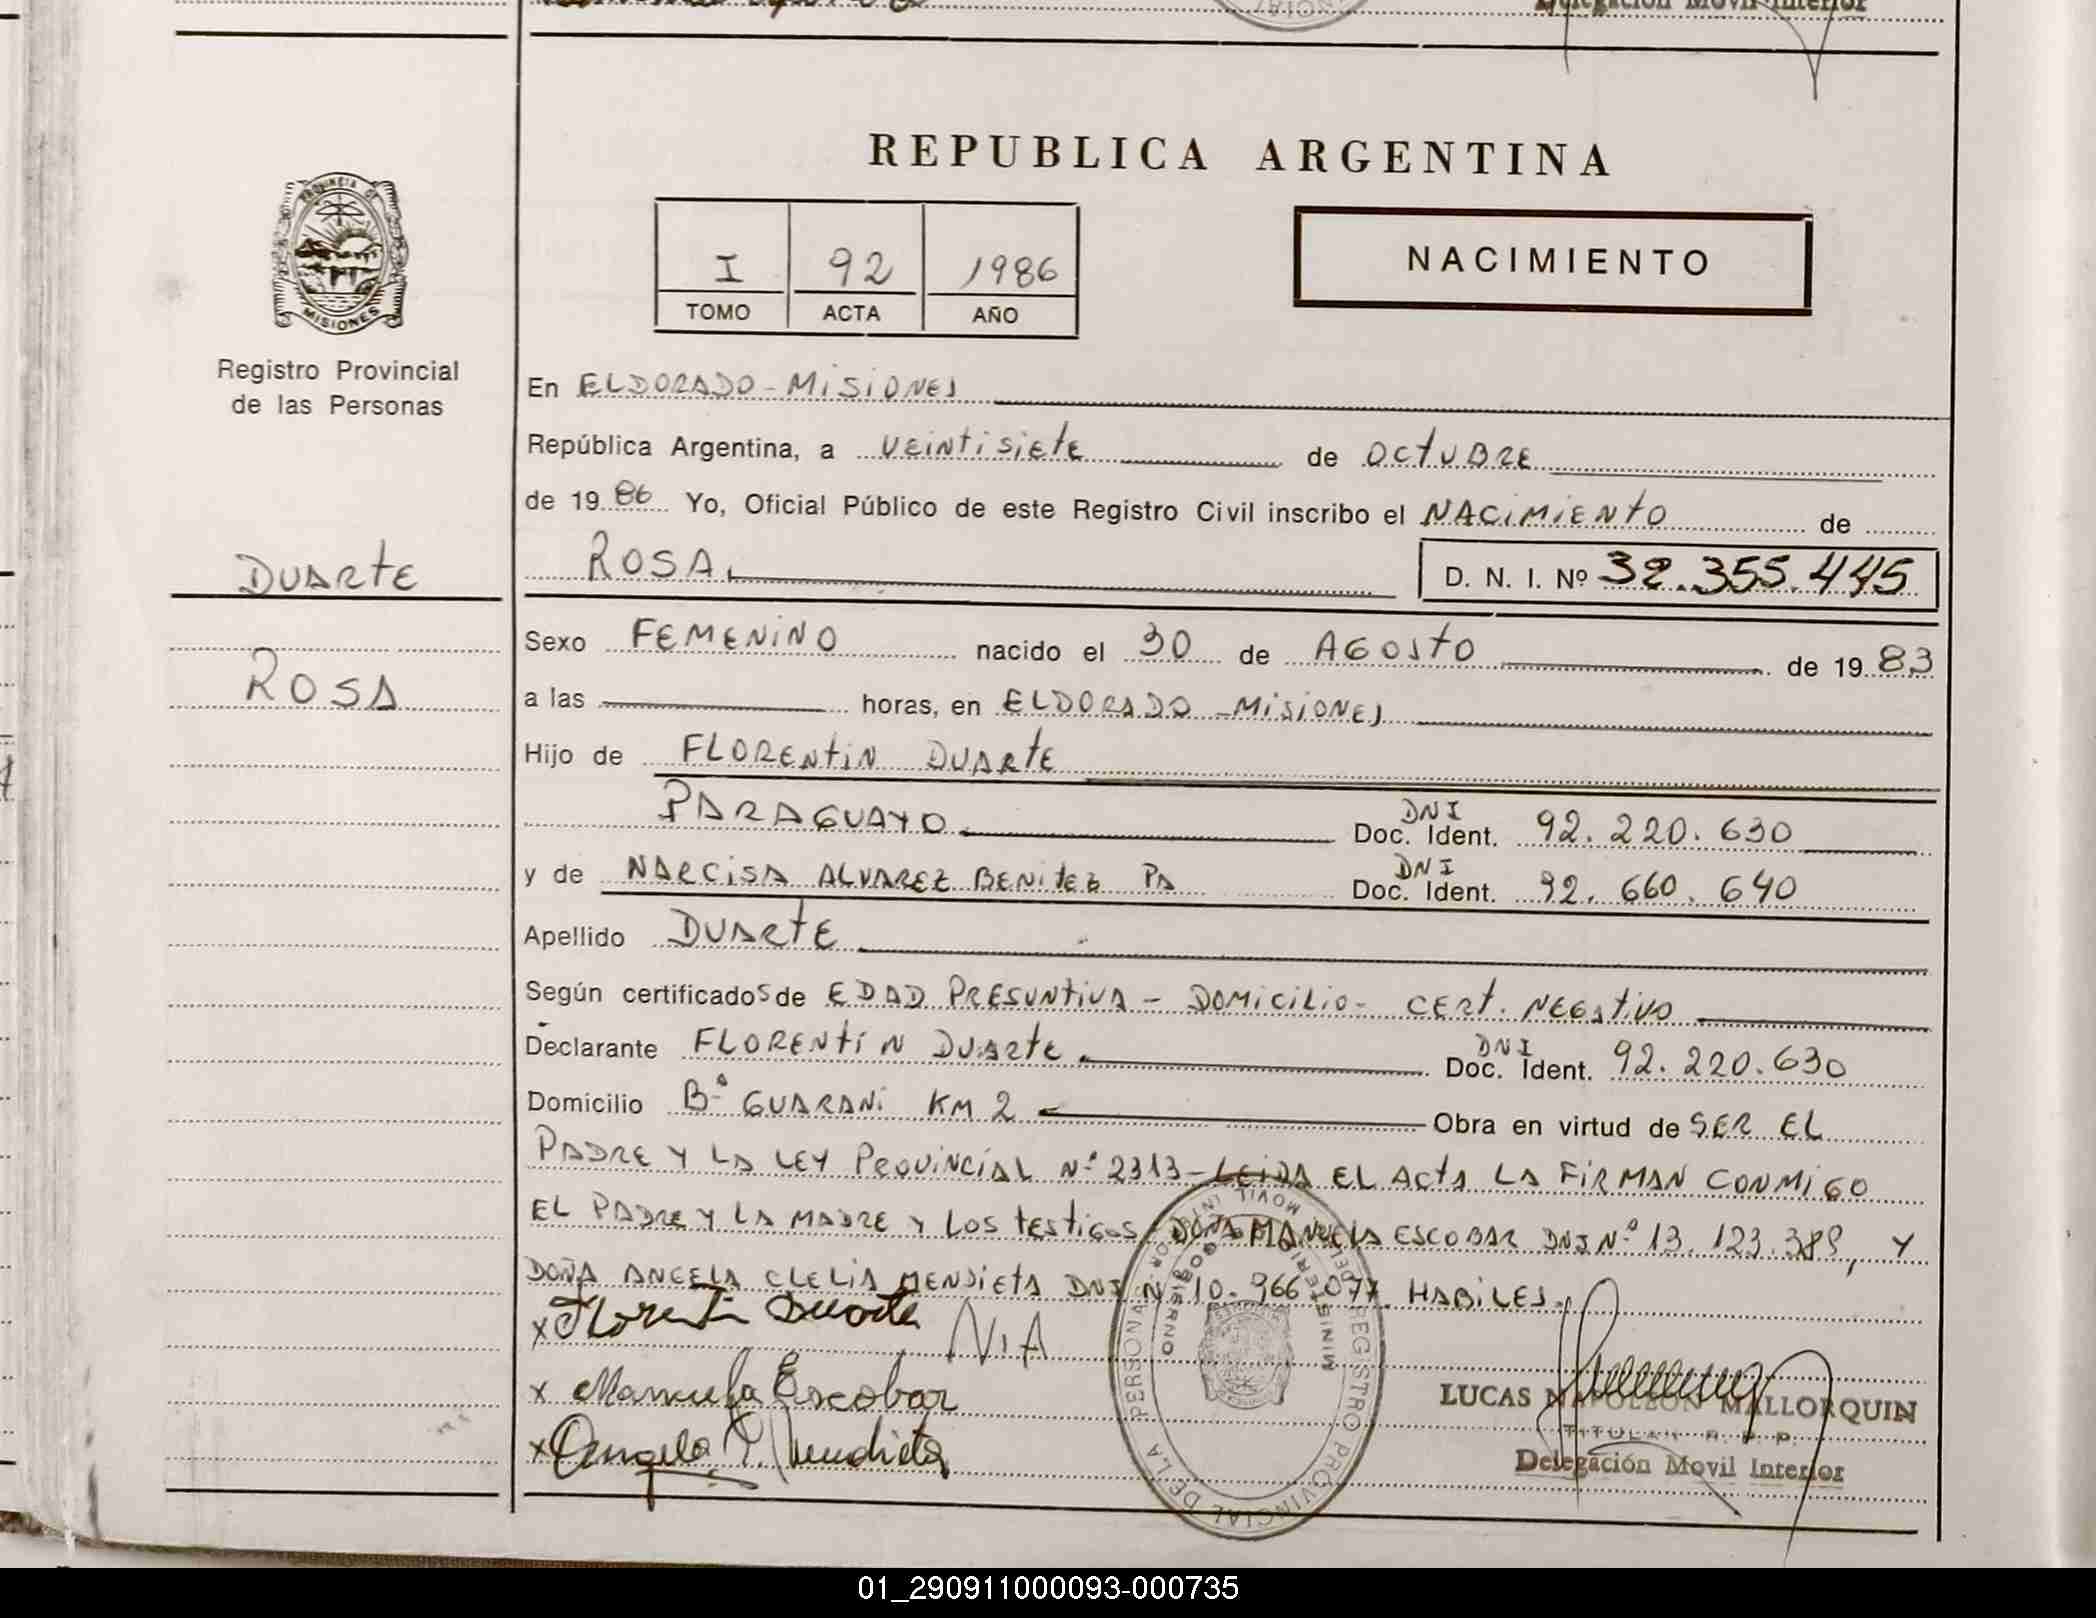 Delegación Movil Interior
REPUBLICA ARGENTINA
PROVINCIA DE
MISIONES
Registro Provincial
de las Personas
I 92 1986
TOMO ACTA AÑO
NACIMIENTO
En ELDORADO - MISIONES
República Argentina, a VEINTISIETE de OCTUBRE
de 19 86 Yo, Oficial Público de este Registro Civil inscribo el NACIMIENTO de
DUARTE
ROSA. D. N. I. Nº 32.355.445
Sexo FEMENINO nacido el 30 de AGOSTO de 19 83
ROSA
a las horas, en ELDORADO - MISIONES
Hijo de FLORENTIN DUARTE
PARAGUAYO DNI Doc. Ident. 92.220.630
y de NARCISA ALVAREZ BENITEZ PA DNI Doc. Ident. 92.660.640
Apellido DUARTE
Según certificados de EDAD PRESUNTIVA - DOMICILIO - CERT. NEGATIVO
Declarante FLORENTÍN DUARTE DNI Doc. Ident. 92.220.630
Domicilio Bº GUARANI KM 2 Obra en virtud de SER EL
PADRE Y LA LEY PROVINCIAL Nº 2313 - LEIDA EL ACTA LA FIRMAN CONMIGO
EL PADRE Y LA MADRE Y LOS TESTIGOS DOÑA MANUELA ESCOBAR DNI Nº 13.123.389, Y
DOÑA ANGELA CLELIA MENDIETA DNI Nº 10.966.077. HABILES.
x Florentin Duarte N.A
x Manuela Escobar
x Angela C. Mendieta
REGISTRO PROVINCIAL DE LA PERSONA
MINISTERIO GOBIERNO
LUCAS NAPOLEON MALLORQUIN
TITULAR R. P. P.
Delegación Movil Interior
01_290911000093-000735